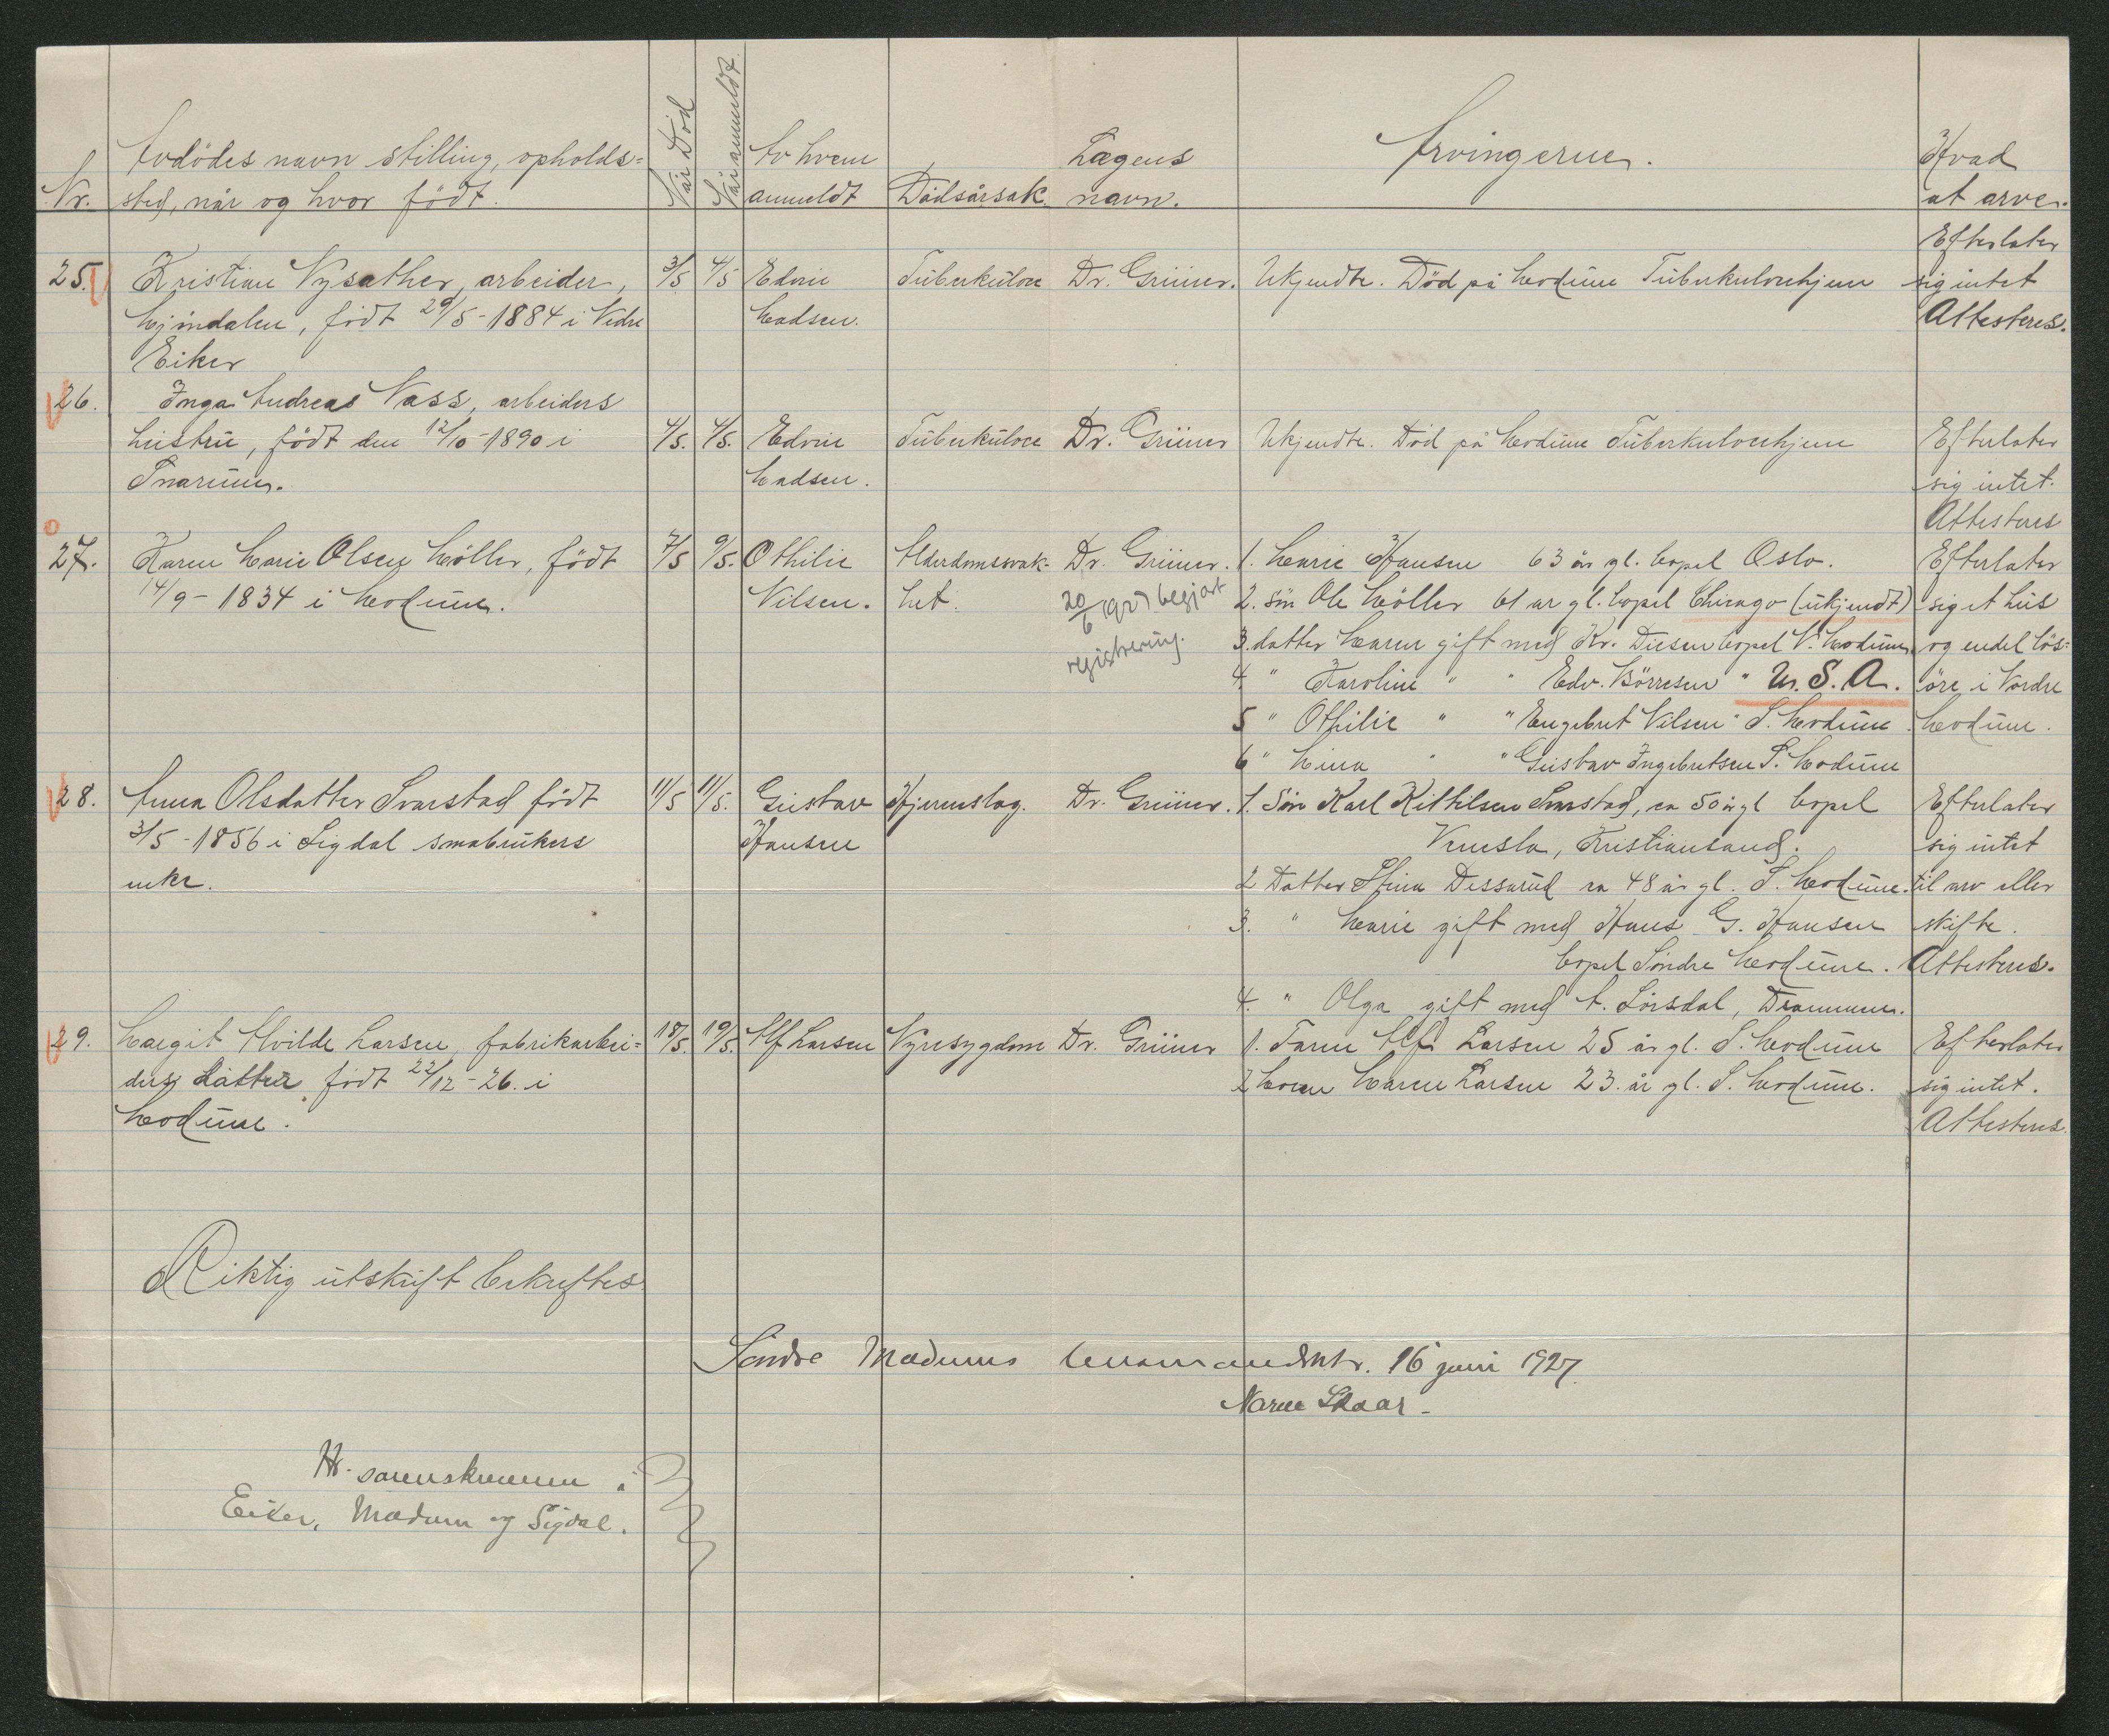 Nr.
Avdödes navn stilling, opholds=
sted, når og hvor födt.
Når Död
Når anmeldt.
Av hvem
anmeldt
Dödsårsak.
Lægens
navn.
Arvingerne.
Hvad
at arve.
25.
Kristian Nysæther, arbeider,
Mjöndalen, födt 29/5-1884 i Nedre
Eiker
3/5
4/5
Edvin
Madsen.
Tuberkulose
Dr. Grüner.
Ukjendte. Död på Modum Tuberkulosehjem
Efterlater
sig intet
Attesteres.
26.
Inga Andreas Nass, arbeiders
hustru, födt den 12/10-1890 i
Snarum.
4/5.
4/5.
Edvin
Madsen.
Tuberkulose
Dr. Grüner
Ukjendte. Död på Modum Tuberkulosehjem
Efterlater
sig intet.
Attesteres
27.
Karen Marie Olsen Möller, födt
14/9-1834 i Modum.
7/5
9/5.
Othilie
Nilsen.
Alderdomssvak-
het.
Dr. Grüner.
20/6 1927 begjært
registrering.
1. Marie Hansen 63 år gl. bopel Oslo.
2. sön Ole Möller 61 år gl. bopel Chicago (ukjendt)
3. datter Maren gift med Kr. Diesen bopel N. Modum.
4. " Karoline " " Edv. Börresen " U. S. A.
5 " Othilie " " Engebret Nilsen " S. Modum.
6 " Mina " " Gustav Ingebretsen S. Modum
Efterlater
sig et hus
og endel lös=
öre i Nordre
Modum.
28.
Anna Olsdatter Svarstad födt
3/5-1856 i Sigdal småbrukers
enke.
11/5
11/5.
Gustav
Hansen
Hjerneslag.
Dr. Grüner.
1. Sön Karl Kittilsen Svarstad, ca 50 år gl bopel
Vennsla, Kristiansand.
2 Datter Stina Dessarud ca 48 år gl. S. Modum.
3. " Marie gift med Hans G. Hansen
bopel Söndre Modum.
4. " Olga gift med A. Lörsdal, Drammen.
Efterlater
sig intet
til arv eller
skifte.
Attesteres.
29.
Margit Alvilde Larsen, fabrikarbei=
ders datter, födt 22/12-26. i
Modum.
18/5.
19/5.
Alf Larsen
Nyresygdom
Dr. Grüner
1. Faren Alf Larsen 25 år gl. S. Modum
2 Moren Maren Larsen 23. år gl. S. Modum.
Efterlater
sig intet.
Attesteres.
Riktig utskrift bekreftes
Söndre Modums lensmandsktr. 16 juni 1927.
Narve Skaar.
Hr. sorenskriveren i
Eiker, Modum og Sigdal.